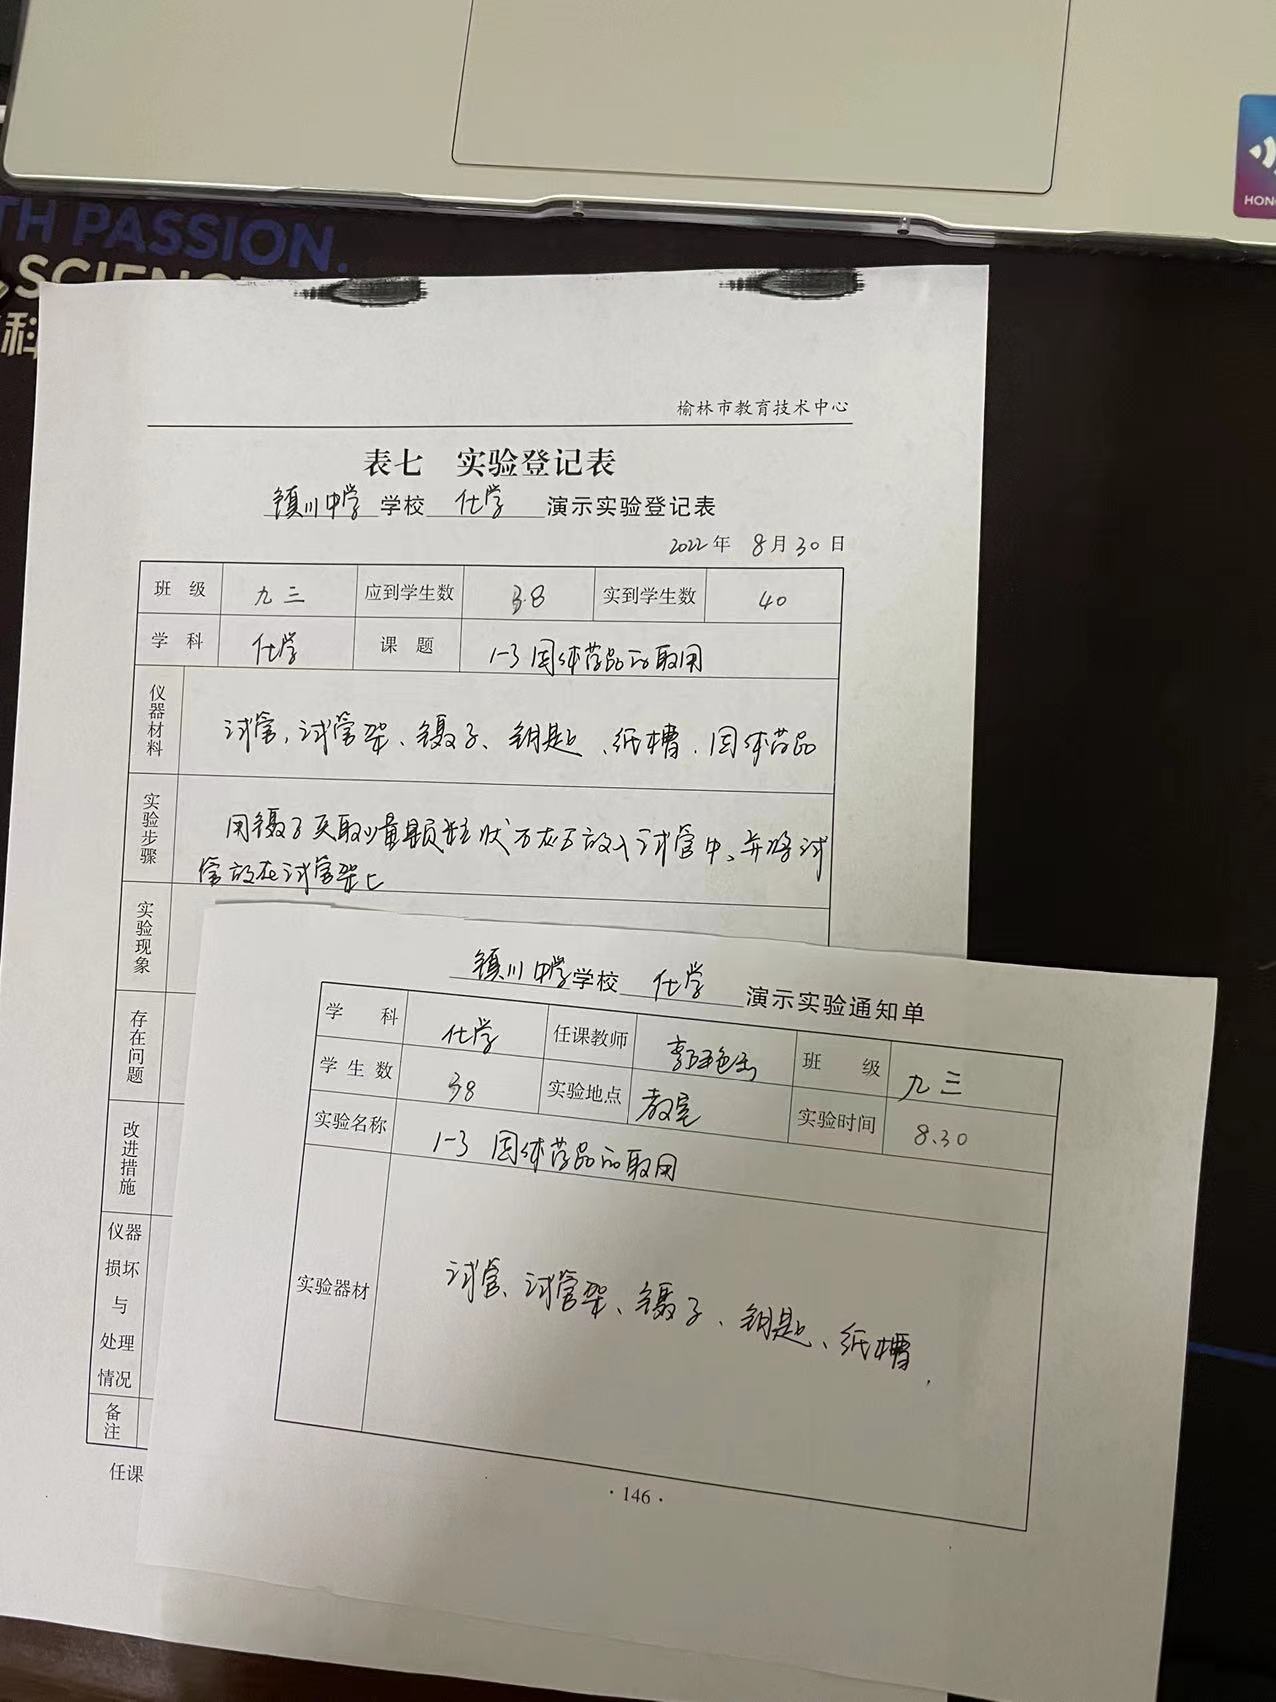 TH PASSION.
SCIENC
科
HON
榆林市教育技术中心
表七 实验登记表
镇川中学 学校 化学 演示实验登记表
2022年 8月30日
班级 九三 应到学生数 38 实到学生数 40
学科 化学 课题 1-3 固体药品的取用
仪器材料 试管,试管架、镊子、钥匙、纸槽.固体药品
实验步骤 用镊子夹取少量颗粒状石灰石放入试管中、并将试
管放在试管架上
实验现象
存在问题
改进措施
仪器
损坏
与
处理
情况
备注
任课
镇川中学学校 化学 演示实验通知单
学科 化学 任课教师 班级 九三
学生数 38 实验地点 教室 实验时间 8.30
实验名称 1-3 固体药品的取用
实验器材 试管、试管架、镊子、钥匙、纸槽,
·146·